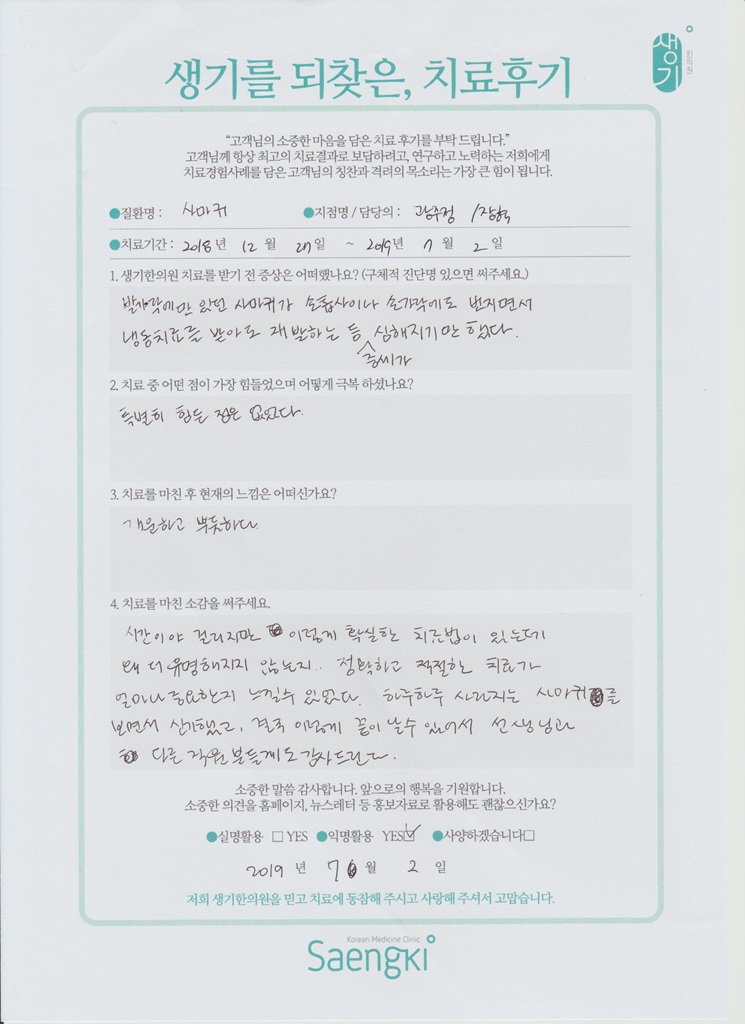 생기를 되찾은, 치료후기
생기
한의원
“고객님의 소중한 마음을 담은 치료 후기를 부탁 드립니다.”
고객님께 항상 최고의 치료결과로 보답하려고, 연구하고 노력하는 저희에게
치료경험사례를 담은 고객님의 칭찬과 격려의 목소리는 가장 큰 힘이 됩니다.
●질환명 : 사마귀 ●지점명 / 담당의 : 광주점 /장혁
●치료기간 : 2018년 12월 27일 ~ 2019년 7월 2일
1. 생기한의원 치료를 받기 전 증상은 어떠했나요? (구체적 진단명 있으면 써주세요.)
발가락에만 있던 사마귀가 손톱사이나 손가락에도 번지면서
냉동치료를 받아도 재발하는 등 증세가 심해지기만 했다.
2. 치료 중 어떤 점이 가장 힘들었으며 어떻게 극복 하셨나요?
특별히 힘든 점은 없었다.
3. 치료를 마친 후 현재의 느낌은 어떠신가요?
개운하고 뿌듯하다.
4. 치료를 마친 소감을 써주세요.
시간이야 걸리지만 이렇게 확실한 치료법이 있는데
왜 더 유명해지지 않는지.. 정확하고 적절한 치료가
얼마나 중요한지 느낄수 있었다. 하루하루 사라지는 사마귀를
보면서 신기했고, 결국 이렇게 끝이 날수 있어서 선생님과
다른 직원분들께도 감사드린다.
소중한 말씀 감사합니다. 앞으로의 행복을 기원합니다.
소중한 의견을 홈페이지, 뉴스레터 등 홍보자료로 활용해도 괜찮으신가요?
●실명활용 □ YES ●익명활용 YES☑ ●사양하겠습니다□
2019 년 7 월 2 일
저희 생기한의원을 믿고 치료에 동참해 주시고 사랑해 주셔서 고맙습니다.
Korean Medicine Clinic
Saengki